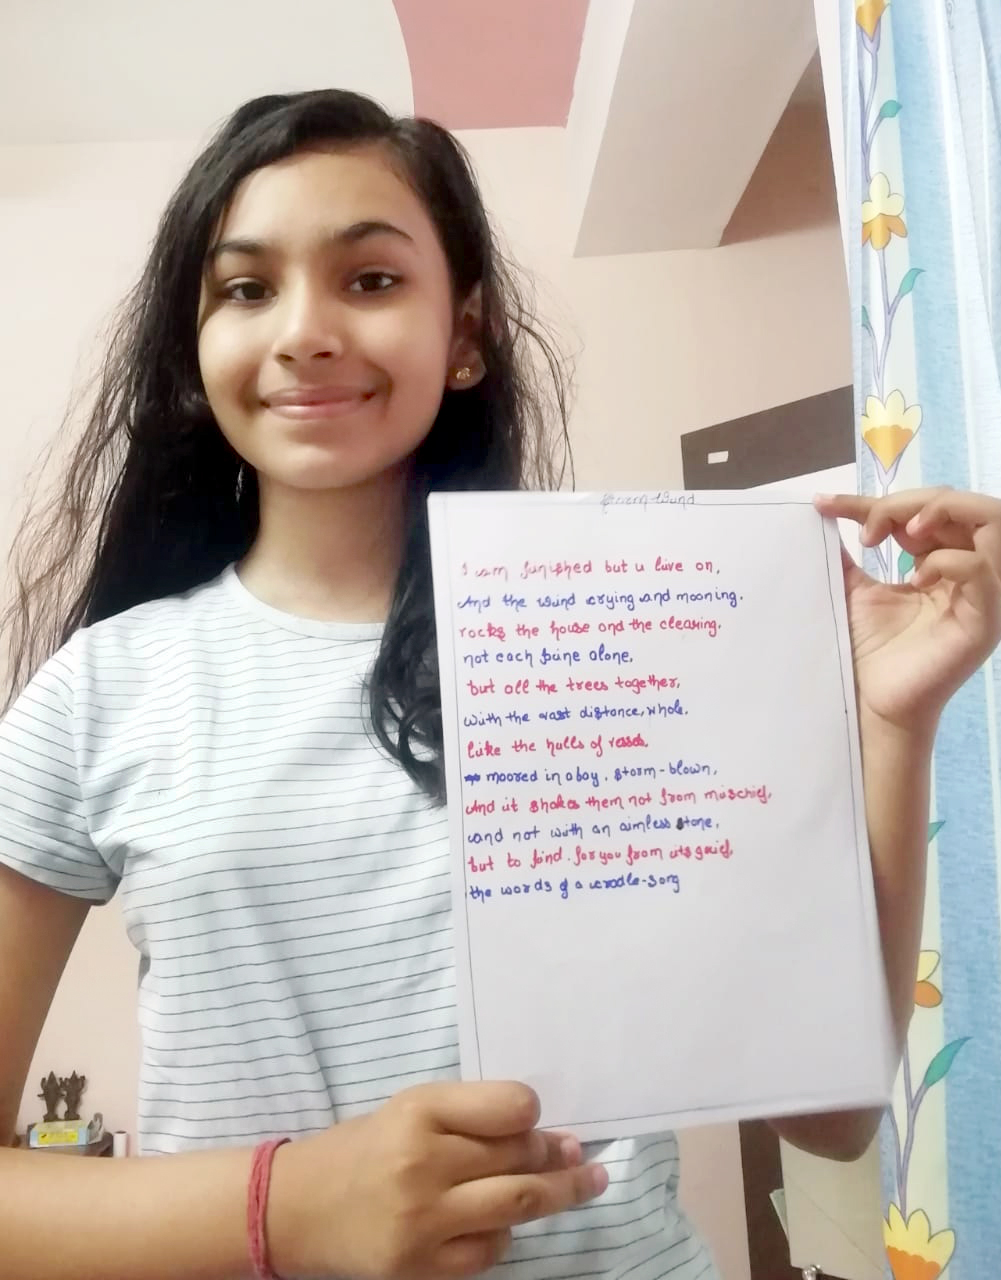 I am funished but u live on,
And the wind crying and mooning.
rocks the house and the clearing.
not each pine alone,
but all the trees together,
with the vast distance, whole.
like the hulls of vessels,
moored in a bay, storm-blown,
And it shakes them not from mischief,
and not with an aimless stone,
but to find. for you from its grief,
the words of a cradle-song